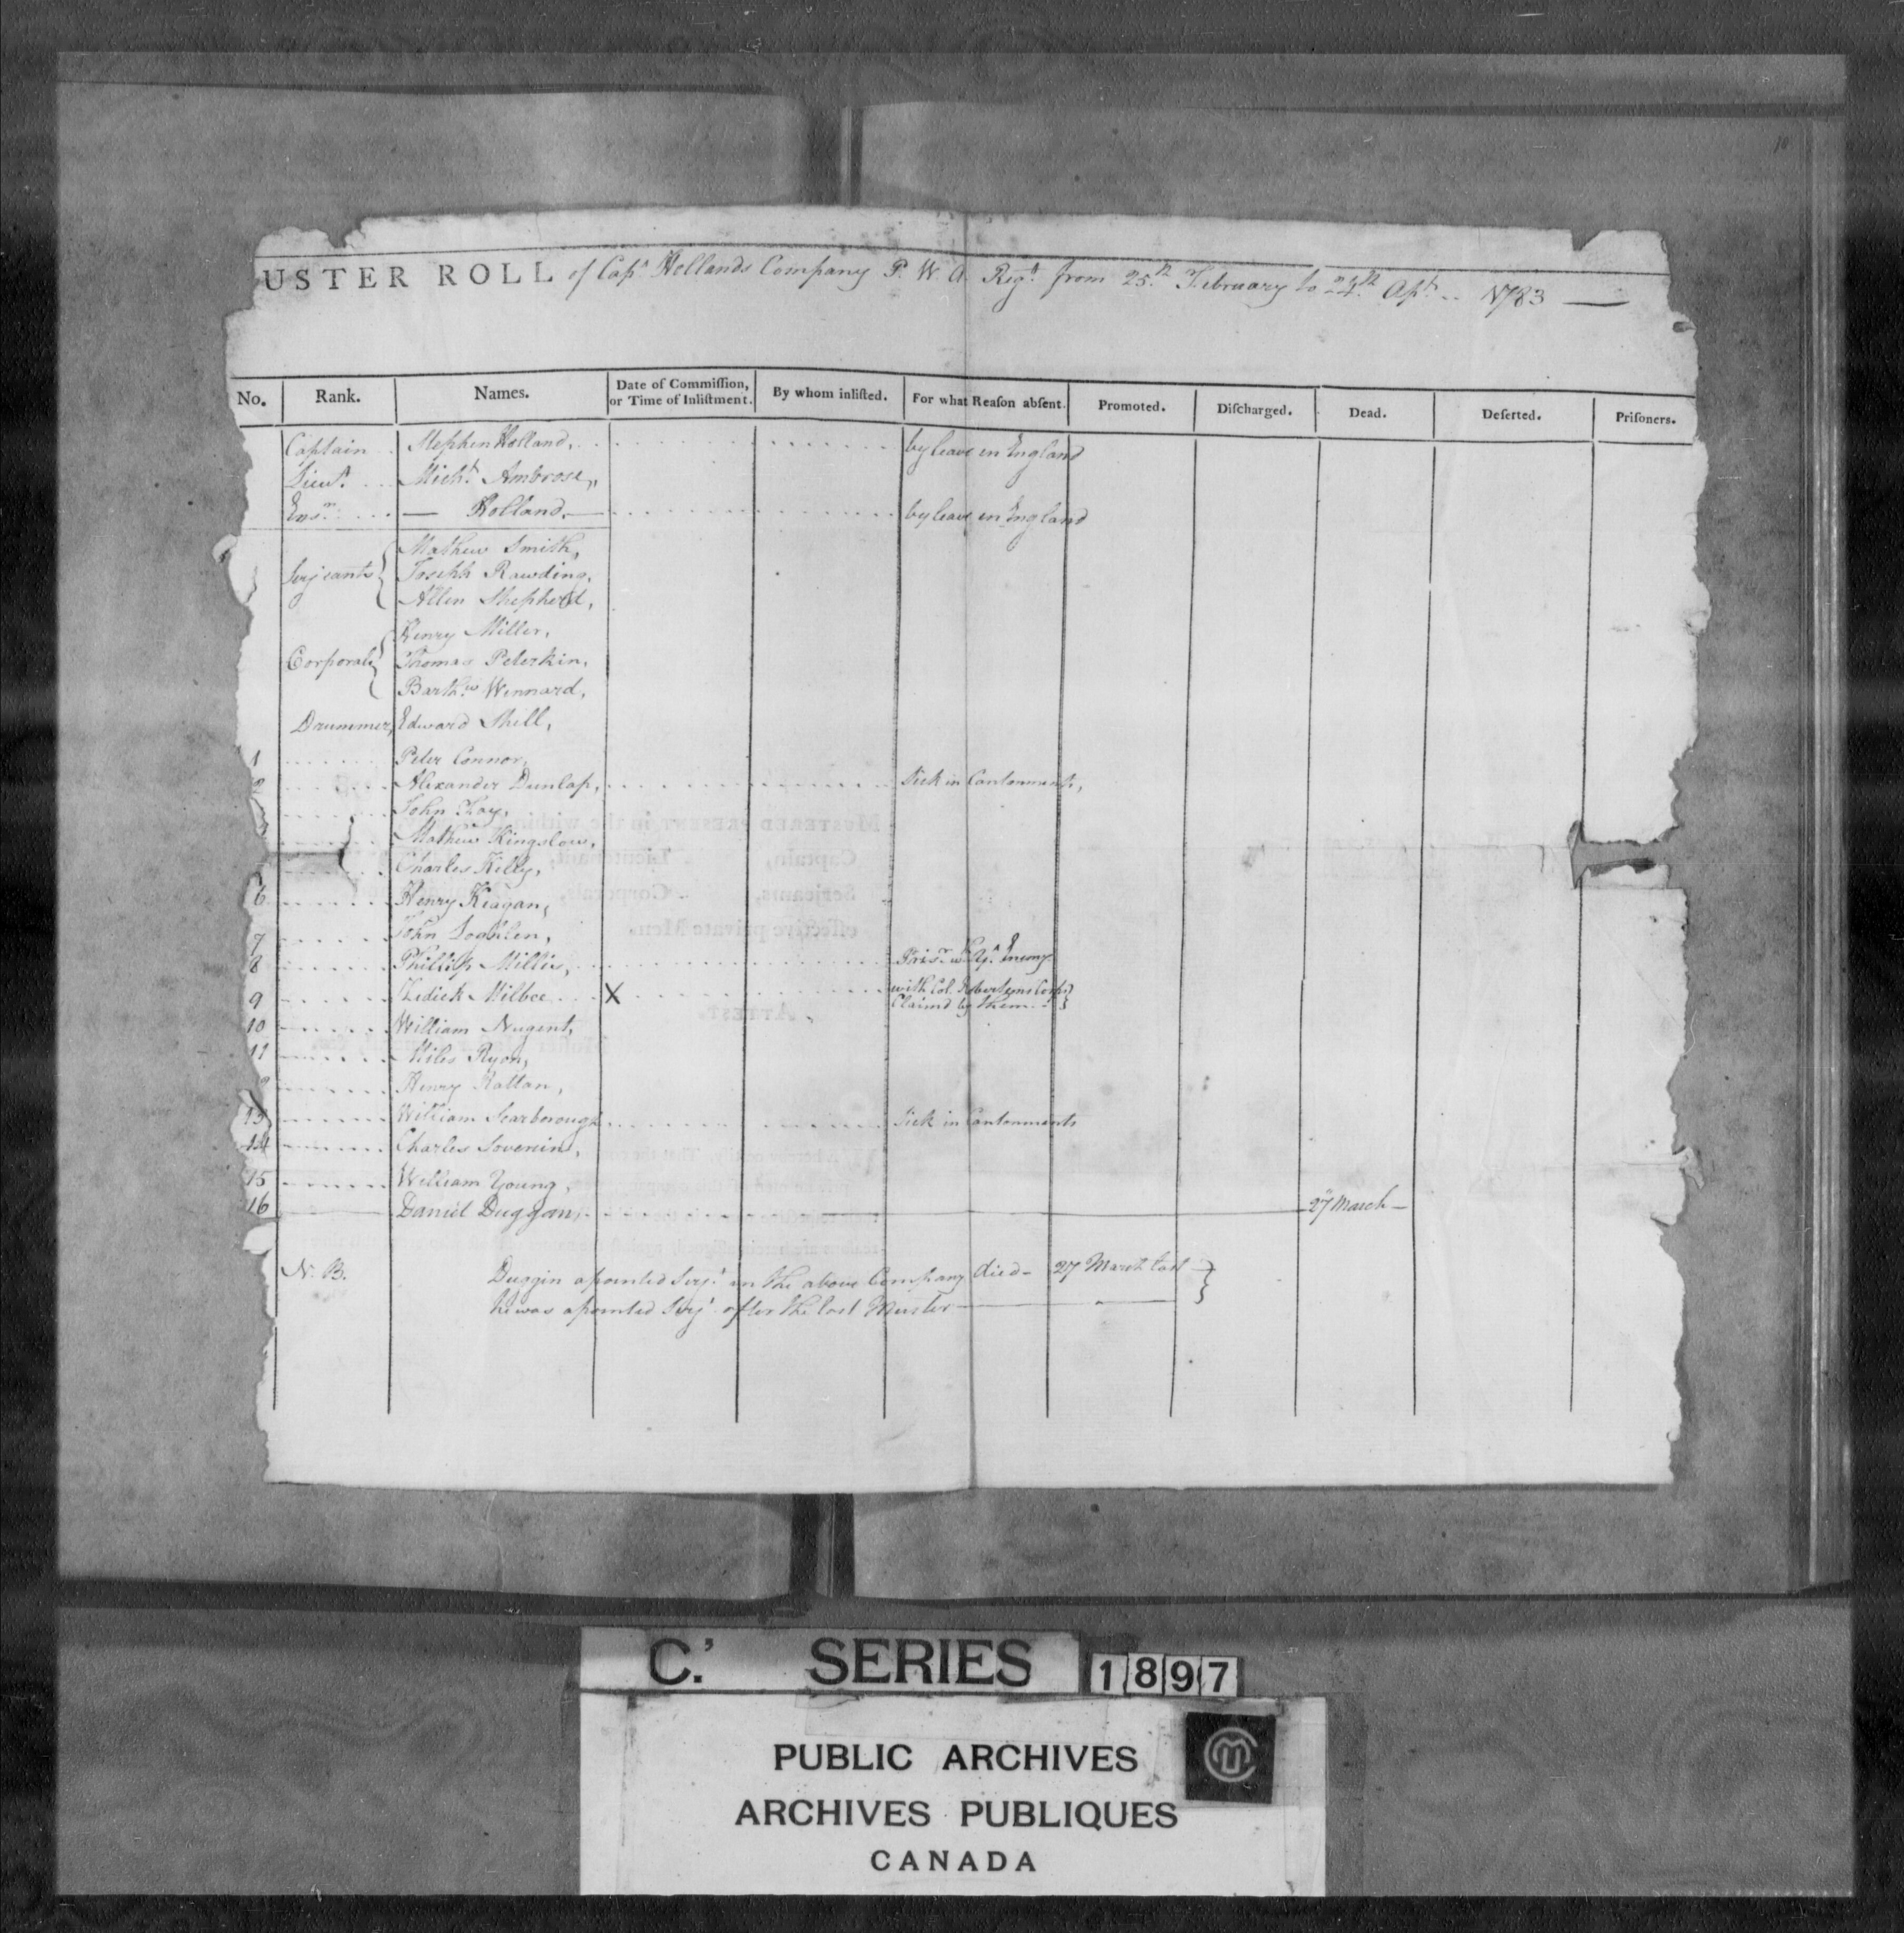 USTER ROLL of Capt Hollands Company P. W. A. Regt from 25th February to 24th Apl .. 1783
No. Rank. Names. Date of Commiſſion, or Time of Inliſtment. By whom inliſted. For what Reaſon abſent. Promoted. Diſcharged. Dead. Deſerted. Priſoners.
Captain Stephen Holland, by leave in England
Lieut. Michl Ambrose,
Ensn — Holland, by leave in England
Serjeants Mathew Smith,
Joseph Rawding,
Allen Shepherd,
Henry Miller,
Corporals Thomas Peterkin,
Barthw Wennard,
Drummer, Edward Shill,
1 Peter Connor,
2 Alexander Dunlap, Sick in Cantonments,
John Fay,
Mathew Kingslow,
Charles Killy,
6 Henry Keagan,
7 John Loghlen,
8 Phillip Millis, Prisr wt ye Enemy
9 Zedick Milbee X with Col. Robertsons Corps
Claimd by them
10 William Nugent,
11 Miles Ryon,
Henry Rattan,
13 William Scarborough Sick in Cantonments
14 Charles Soverein,
15 William Young,
16 Daniel Duggan, 27 March
N. B. Duggin apointed Serjt in the above Company died 27 March last
he was apointed Serjt after the last Muster
C.' SERIES 1897
PUBLIC ARCHIVES
ARCHIVES PUBLIQUES
CANADA